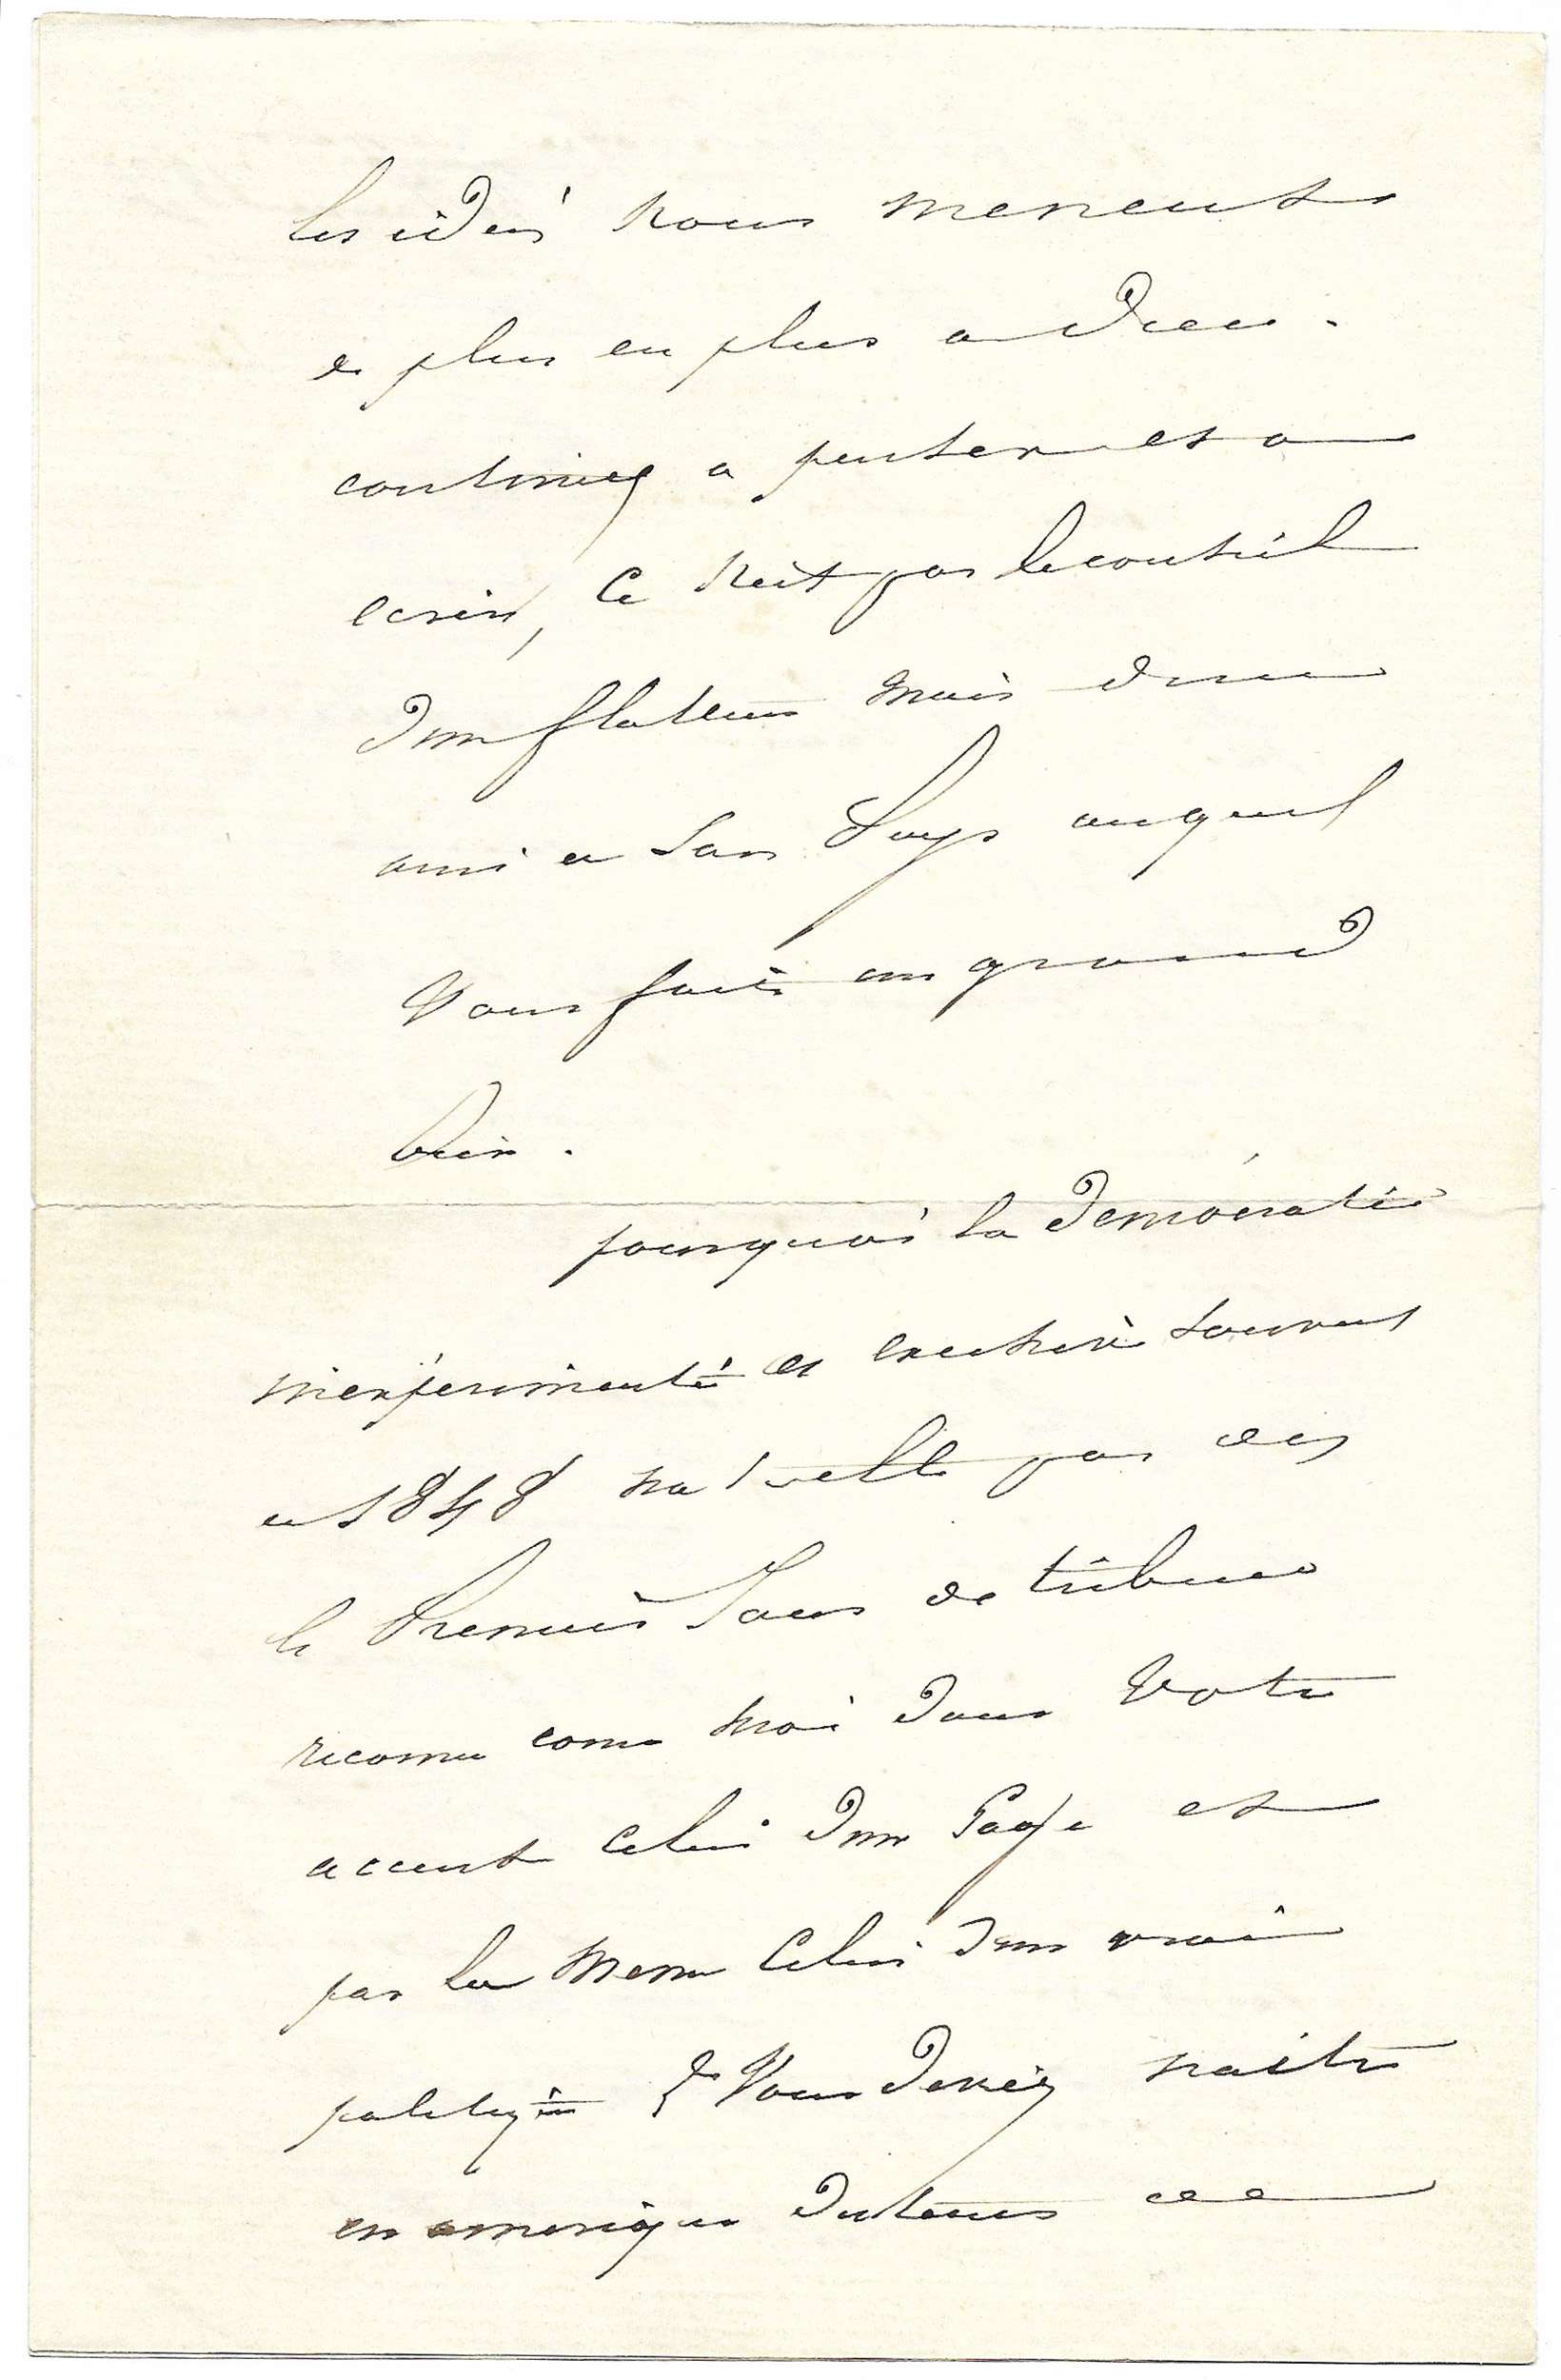 les idées nous menent
de plus en plus a Dieu.
continuez a penser et a
ecrire, Ce n'est pas le conseil
d'un flateur mais d'un
ami a son Pays auquel
Vous faites un grand
bien.
pourquoi la Démocratie
inexpérimentée et souvent
en 1848 na t'elle pas dès
le Premier Jour de tribune
reconnu come moi dans Votre
accent Celui d'un Sage et
par la meme Celui d'un vrai
politique Vous Deviez naitre
en amerique du tems de